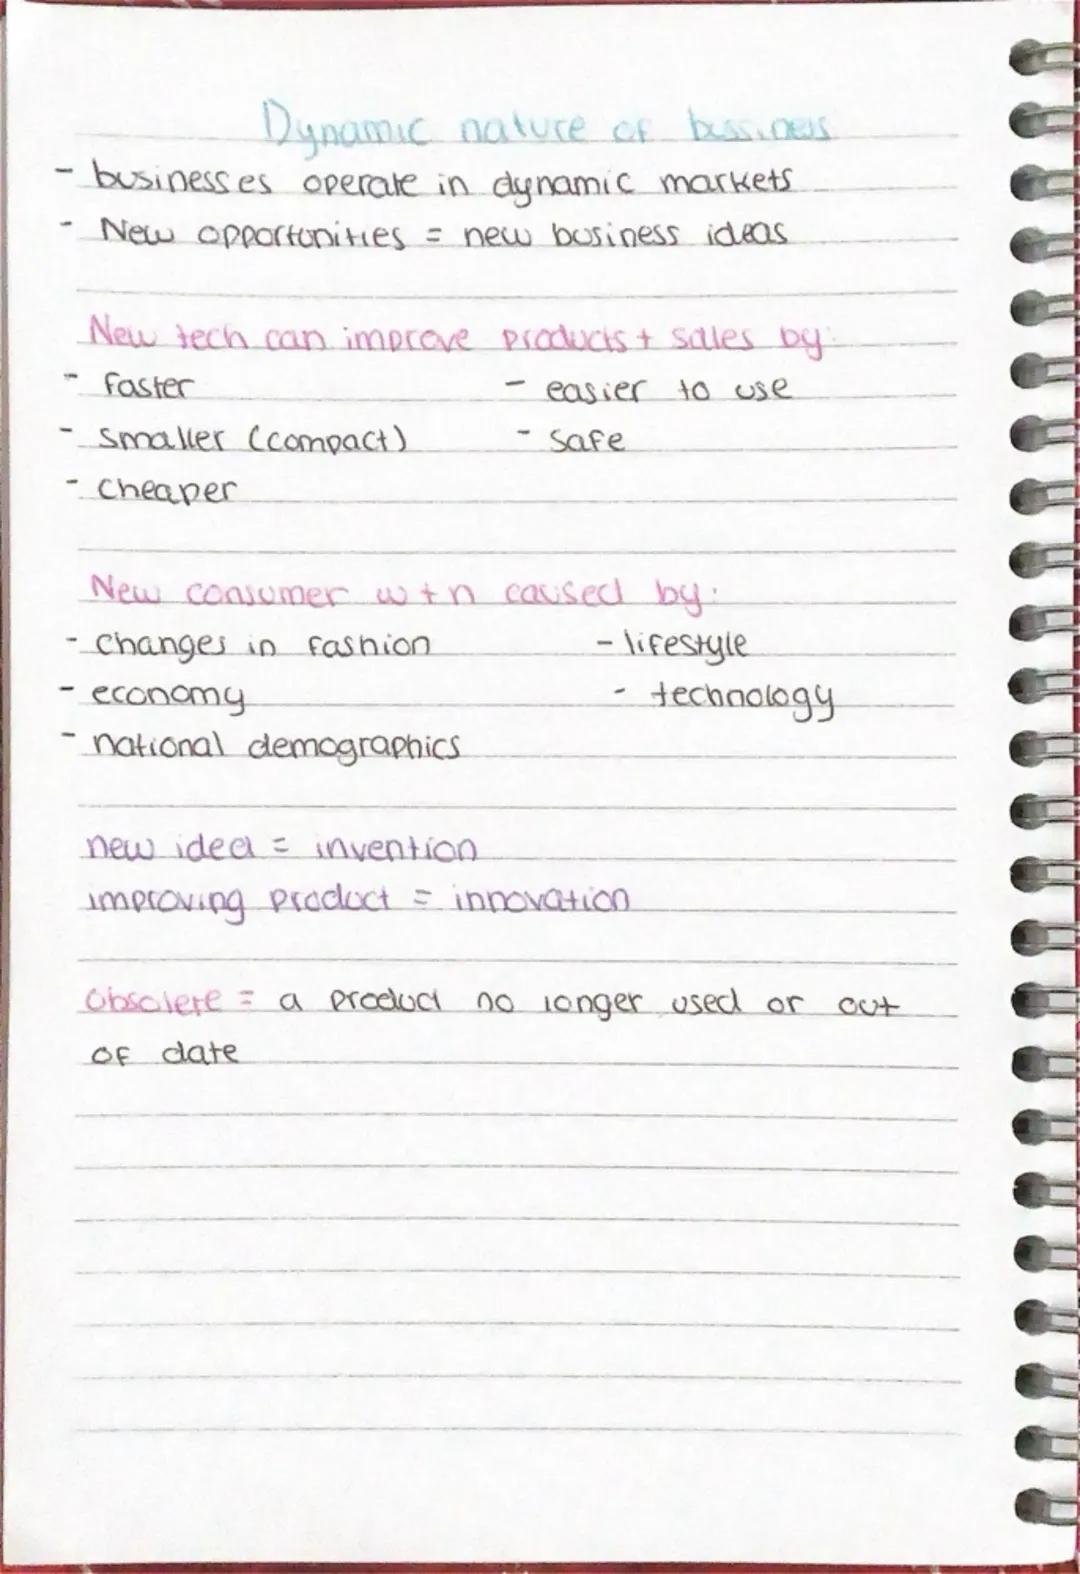 Dynamic nature of bussiness
- businesses operate in dynamic markets
- New opportunities = new business ideas
New tech can improve products + sales by:
- faster - easier to use
- smaller (compact) - safe
- cheaper
New consumer w+n caused by:
- changes in fashion - lifestyle
- economy - technology
- national demographics
new idea = invention
improving product = innovation
Obsolete = a product no longer used or out
of date